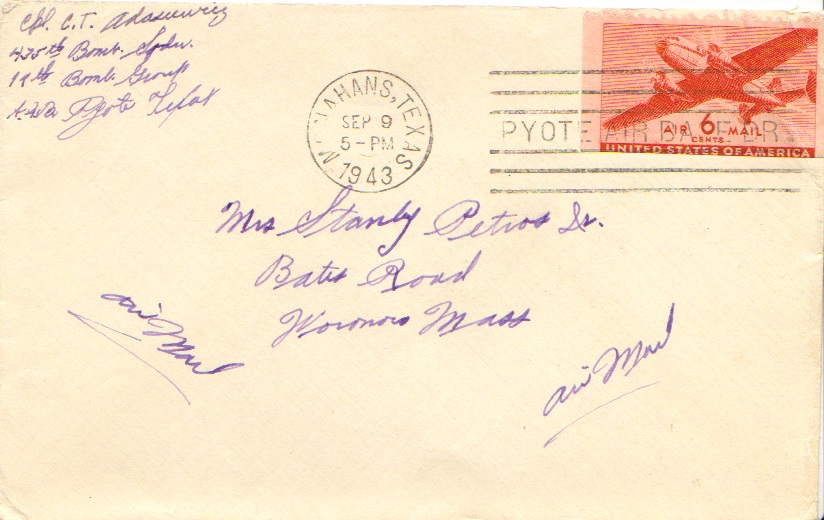 Cpl. C. T. Adasiewicz
435th Bomb. Sqdn.
19th Bomb. Group
A.A.B. Pyote Texas
MONAHANS, TEXAS
SEP 9
5-PM
1943
PYOTE AIR BASE BR.
AIR 6 MAIL
CENTS
UNITED STATES OF AMERICA
Mrs Stanly Petros Sr.
Bates Road
Woronoco Mass
air Mail
air Mail